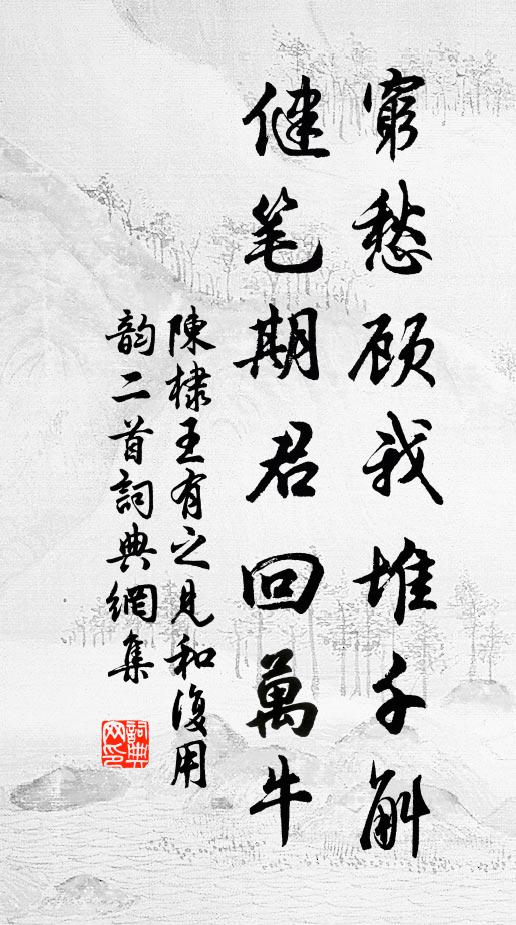 窮愁顾我堆千斛
健笔期君回萬牛
陳棣王有之見和復用
韵二首詞典網集
詞典
网印